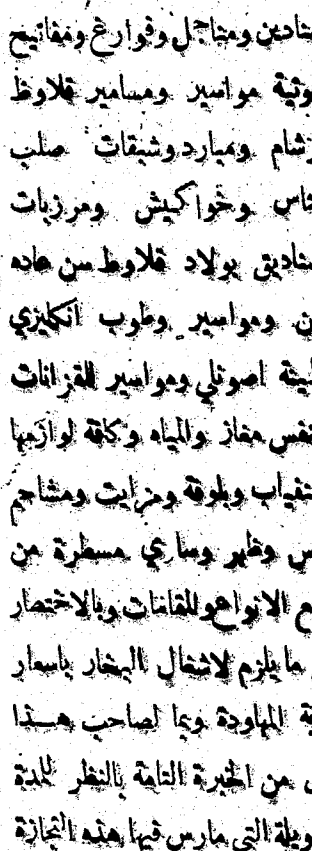 ومفاتيح
مواسير ومسامير قلاوظ
ومبارد وشبقات صلب
وخواكيش ومرزبات
بولاد قلاوط سن عاده
ومواسير وطوب انكليزي
اصوتلي ومواسير للقزانات
مغاز والمياه وكافة لوازمها
وبلوقه ومزايت ومشاحم
وظهر وساري مسطرة من
الانواع وللقامات وبالاختصار
ما يلزم لاشغال البخار باسعار
المهاودة وبما لصاحب هذا
من الخبرة التامة بالنظر للمدة
التي مارس فيها هذه التجارة